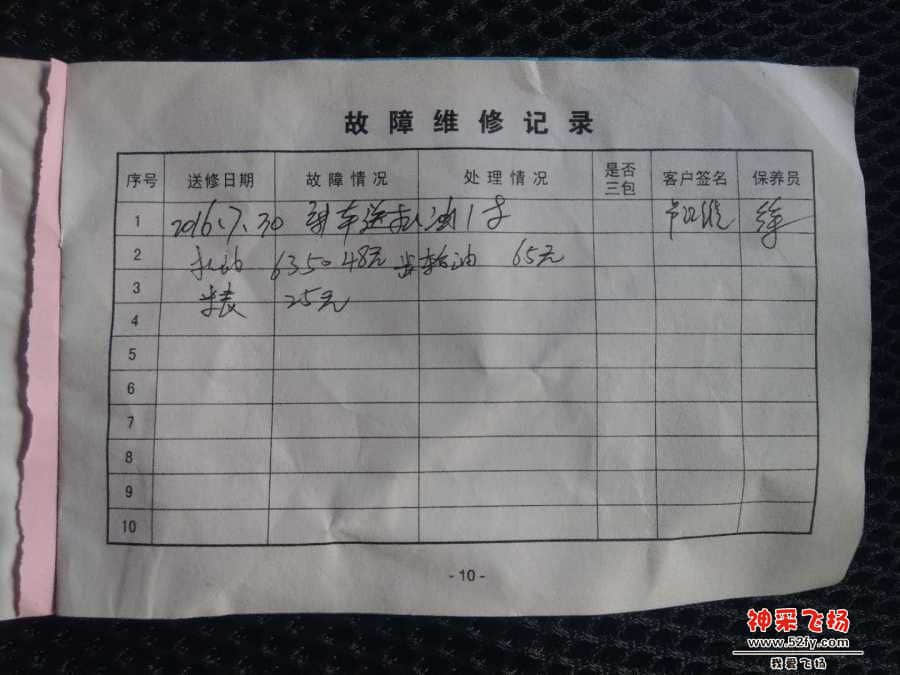 故障维修记录
序号 送修日期 故障情况 处理情况 是否三包 客户签名 保养员
1 2016.7.30 车送机油1
2 机油 48元 齿轮油 65元
3
25元
4
5
6
7
8
9
10
- 10 -
神采飞扬
www.52fy.com
我爱飞扬